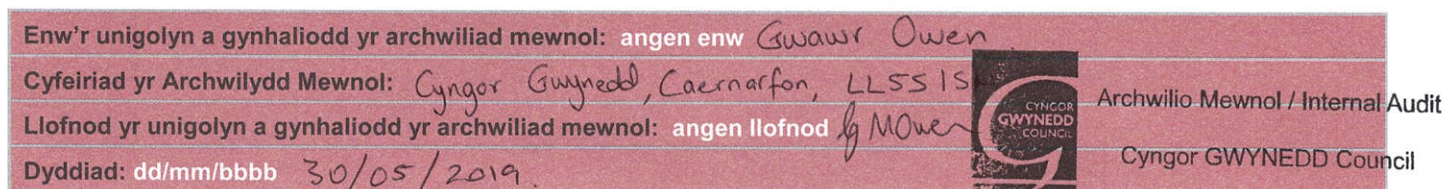 Enw'r unigolyn a gynhaliodd yr archwiliad mewnol: angen enw Gwawr Owen
Cyfeiriad yr Archwilydd Mewnol: Cyngor Gwynedd, Caernarfon, LL55 1S
Llofnod yr unigolyn a gynhaliodd yr archwiliad mewnol: angen llofnod MOwen
Dyddiad: dd/mm/bbbb 30/05/2019.
CYNGOR
GWYNEDD
COUNCIL
Archwilio Mewnol / Internal Audit
Cyngor GWYNEDD Council